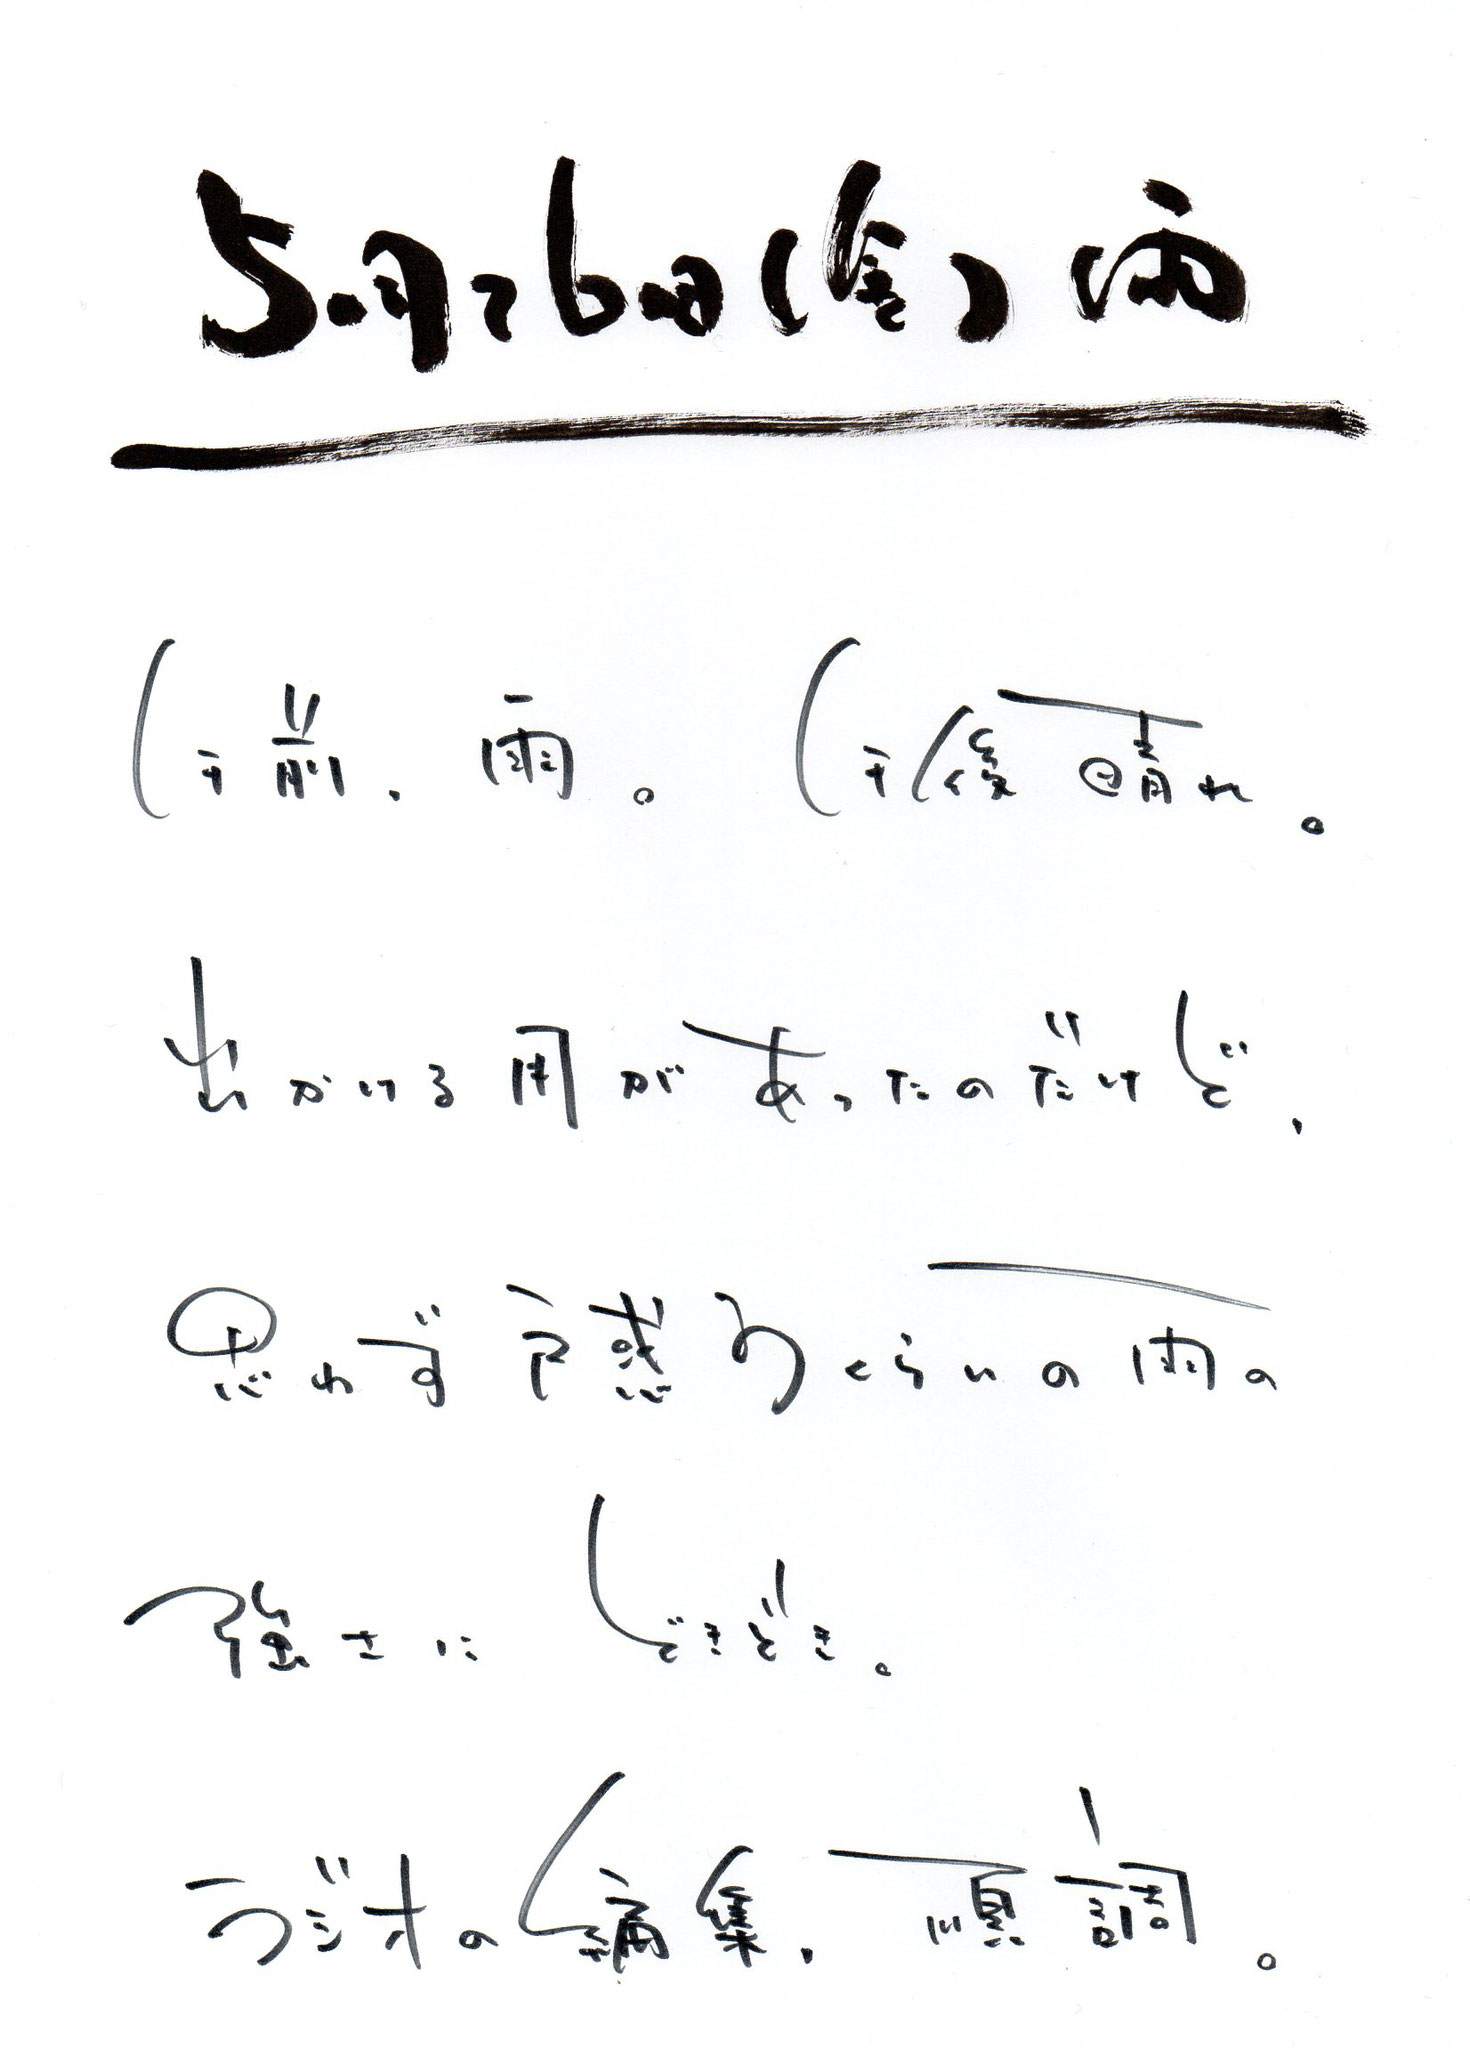 5月26日(金)雨
午前、雨。午後晴れ。
出かける用があったのだけど、
思わず戸惑うくらいの雨の
強さにどきどき。
ラジオの編集、順調。